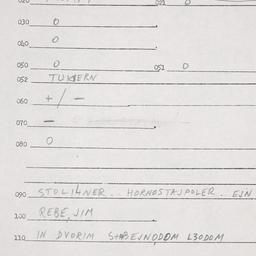 020 021 0
030 0
040 0
050 0 051 0
052 TUKERN
060 + / -
070 -
080 0
090 STOLINER .. HORNOSTAJPOLER . EJN
100 REBE, JIM
110 IN DVORIM